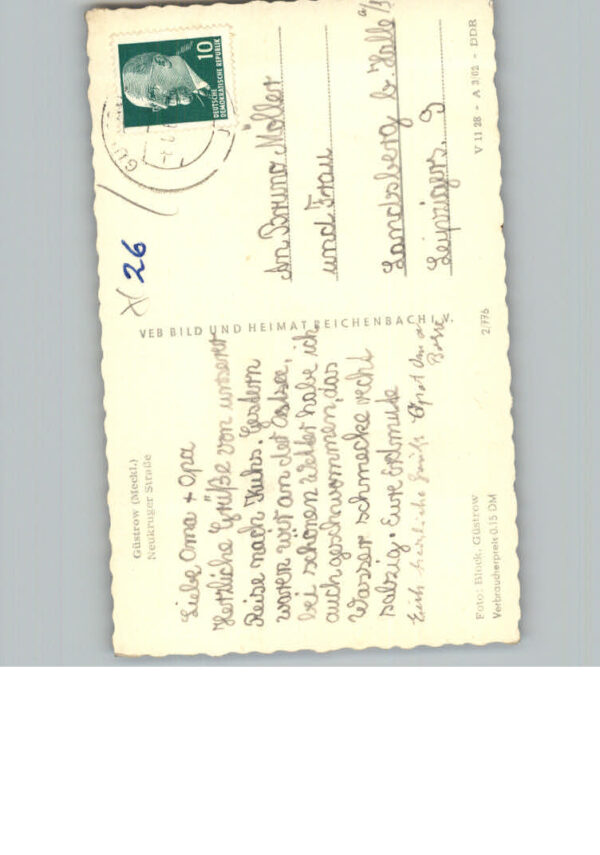 Güstrow (Meckl.)
Neukruger Straße
Liebe Oma + Opa
Herzliche Grüße von unserer
Reise nach Kuhs. Gestern
waren wir an der Ostsee,
bei schönen Wetter habe ich
auch geschwommen, das
Wasser schmeckte recht
salzig. Eure Erdmute
Euch herzliche Grüße
Foto: Block, Güstrow
Verbraucherpreis 0,15 DM
VEB BILD UND HEIMAT REICHENBACH i. V.
2/776
26
10
DEUTSCHE
DEMOKRATISCHE REPUBLIK
An Bruno Möller
und Frau
Landsberg b. Halle a/S
Leipzigers. 9
V 11 28 - A 3/62 - DDR